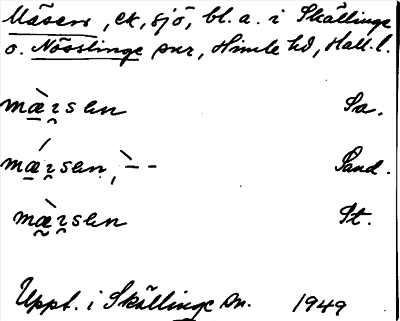 Mäsen, ek, sjö, bl. a. i Skällinge
o. Nösslinge snr, Himle hd, Hall. l.
mæ̀ɪsən Sa.
mǽɪsən, ̀-- Sand.
mæ̀ɪsən St.
Uppt. i Skällinge sn. 1949